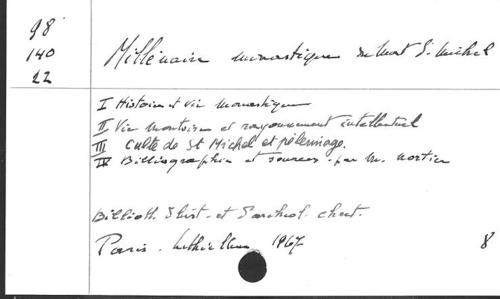 98
140
22
Millénaire monastique du Mont S. Michel
I Histoire et vie monastique
II Vie montoise et rayonnement intellectuel
III Culte de St Michel et pélerinage.
IV Bibliographie et sources. par M. Nortier
Biblioth. d'hist. et d'archeol. chret.
Paris. Lethielleux 1967
8